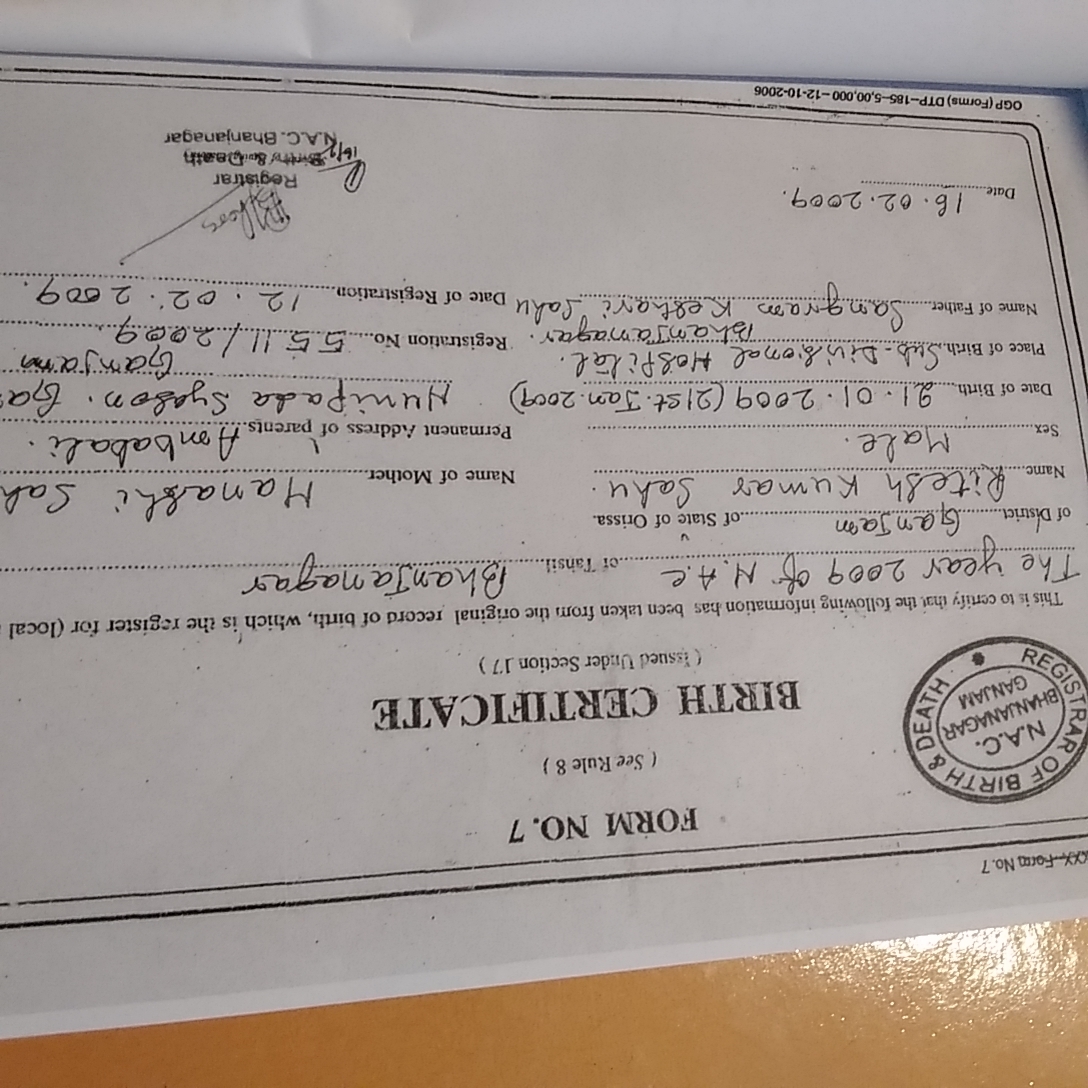 XXX-Form No. 7
FORM NO. 7
( See Rule 8 )
BIRTH CERTIFICATE
( Issued Under Section 17 )
REGISTRAR OF BIRTH & DEATH
N.A.C.
BHANJANAGAR
GANJAM
This is to certify that the following information has been taken from the original record of birth, which is the register for (local
The year 2009 of N.A.C of Tahsil Bhanjanagar
of District Ganjam of State of Orissa.
Name Ritesh Kumar Sahu. Name of Mother Manashi Sah
Sex Male. Permanent Address of parents Ambabali.
Date of Birth 21.01.2009 (21st. Jan. 2009) Ga
Ganjam
Place of Birth Sub-Divisional Hospital. Registration No. 5511/2009
Bhanjanagar.
Name of Father Sangram Keshari Sahu Date of Registration 12.02.2009.
Date 16.02.2009.
Registrar
Birth & Death
N.A.C. Bhanjanagar
OGP (Forms) DTP-185-5,00,000-12-10-2006